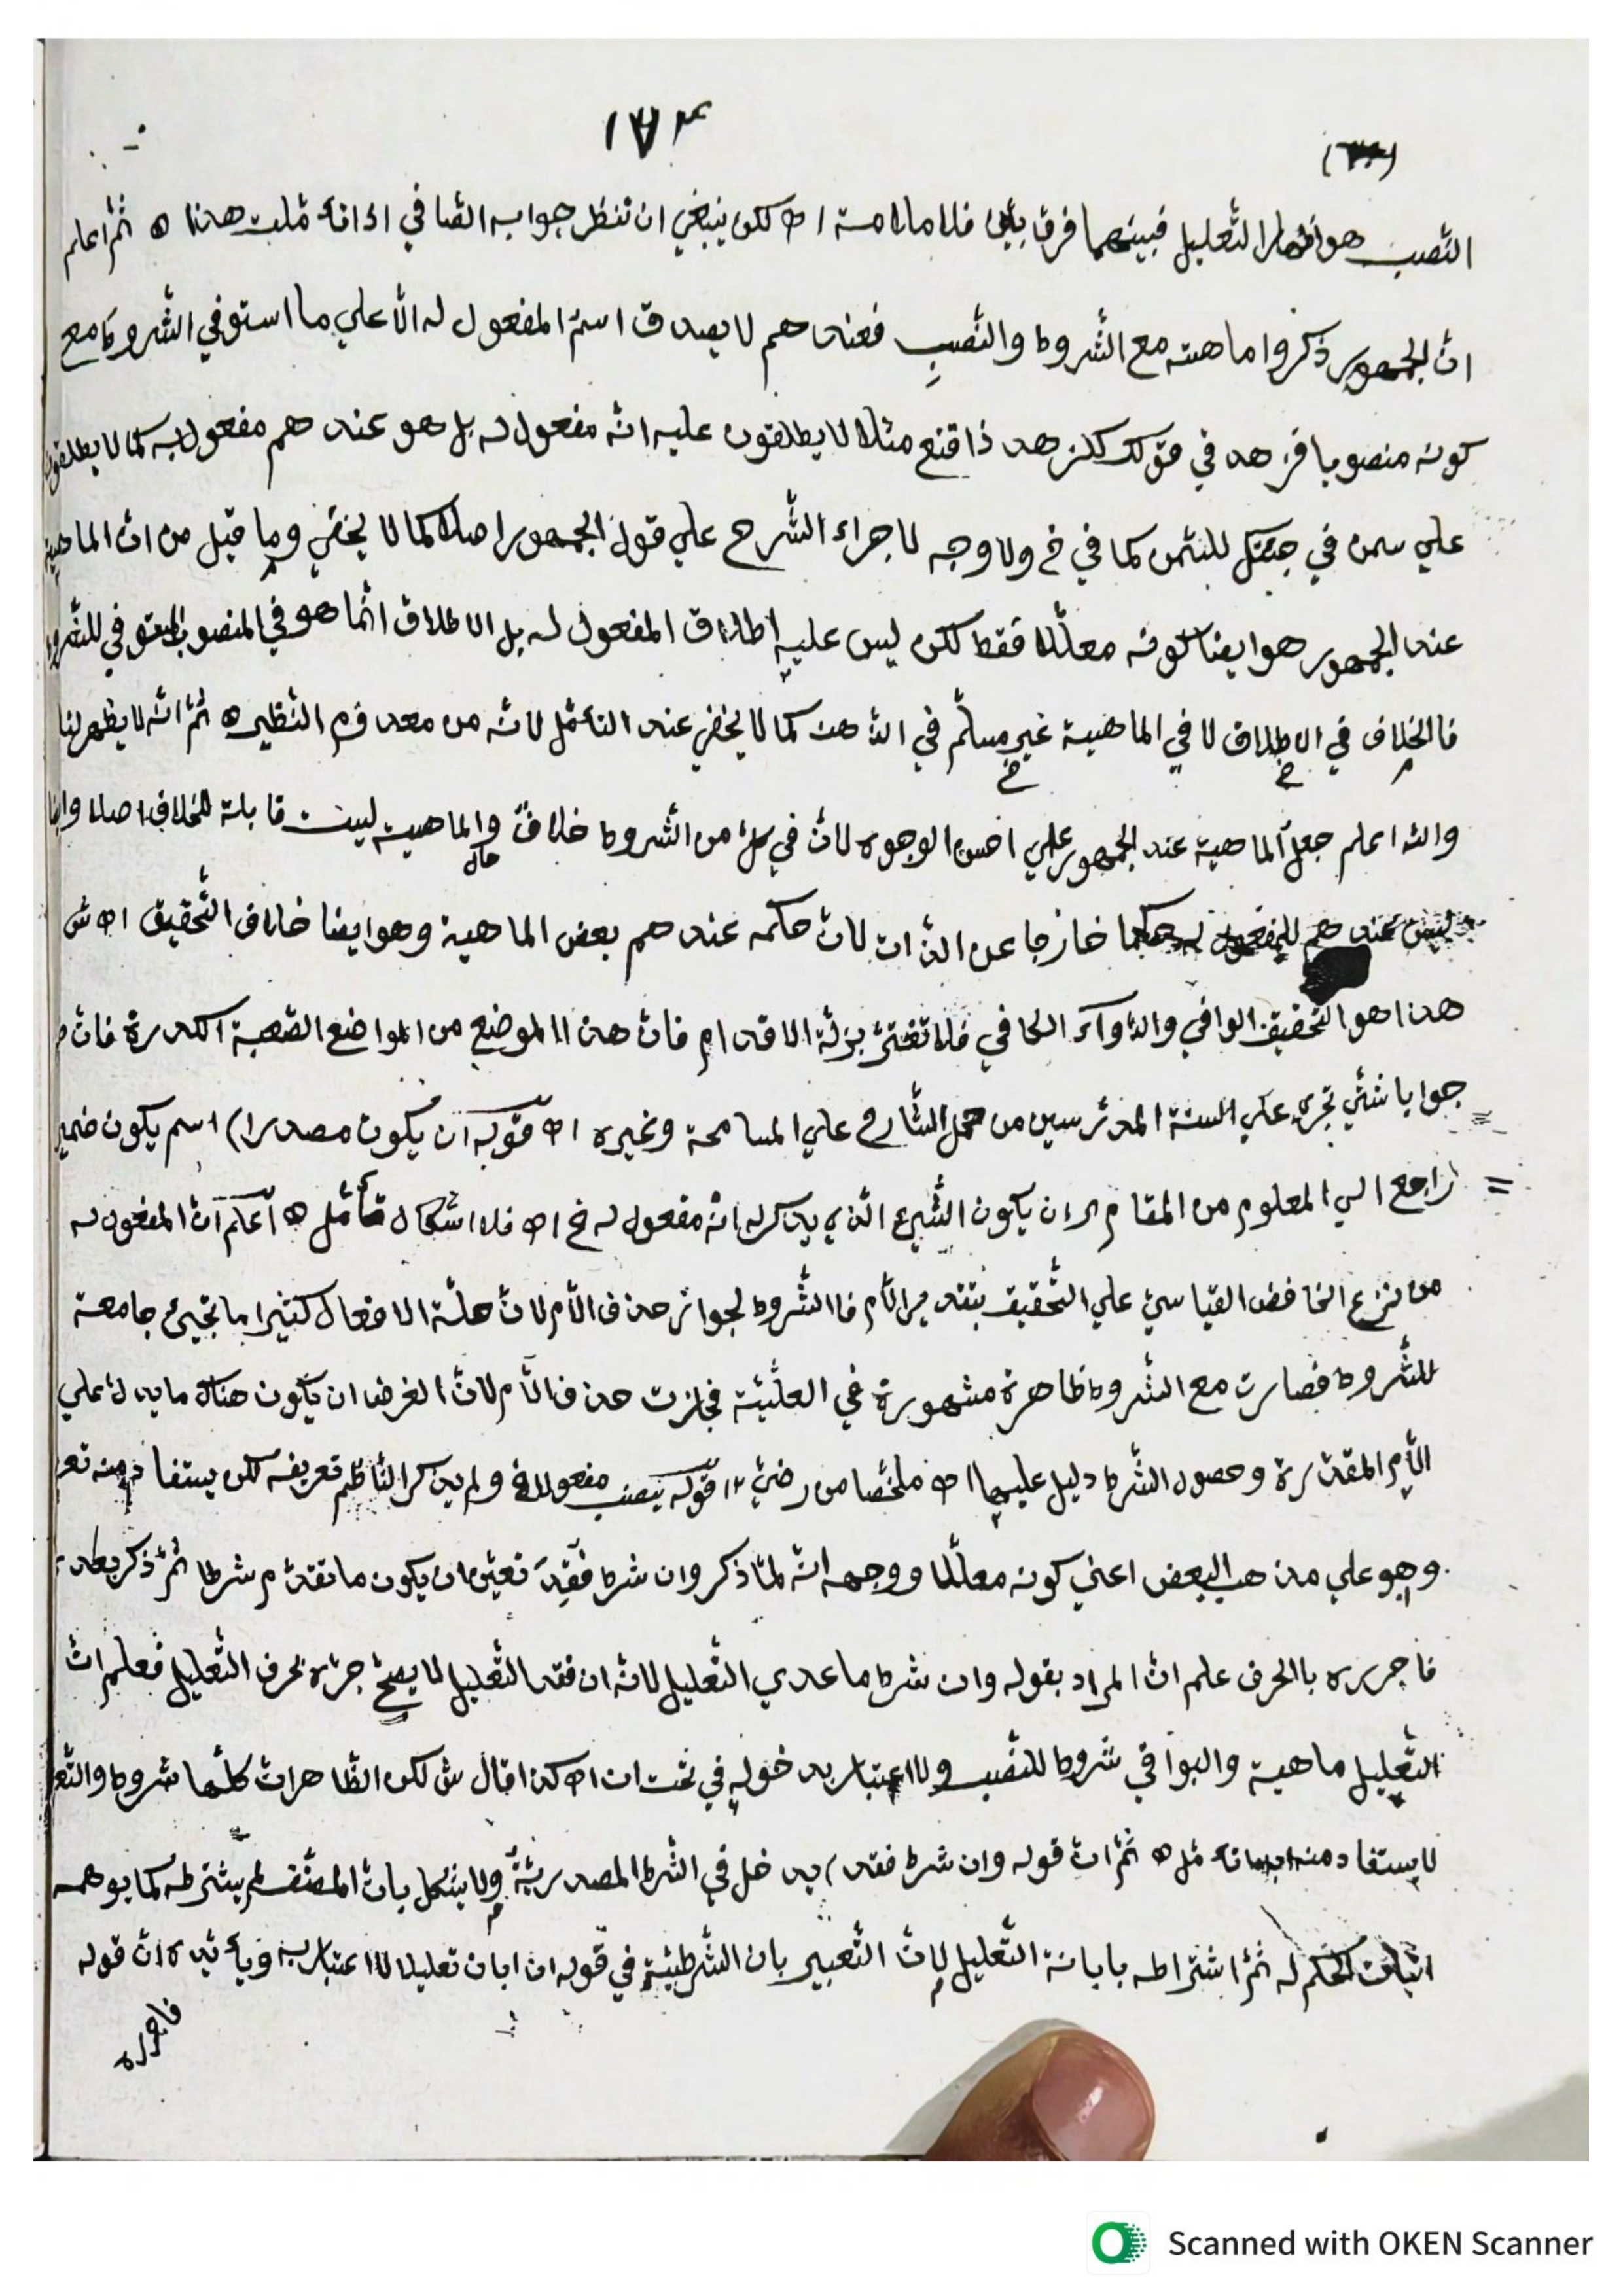 ١٧٣
النّصب هو اظهار التّعليل فبينهما فرق بيّن فلا ملامسة اه لكن ينبغي ان تنظر جوابه الصّافي اذا انا قلت هذا ه ثمّ اعلم
انّ الجمهور ذكروا ماهيته مع الشّروط والنّصب فعندهم لا يصدق اسم المفعول له الّا علي ما استوفي الشّروط مع
كونه منصوبا فزهد في قولك لزهد ذا قنع مثلا لا يطلقون عليه انّه مفعول له بل هو عندهم مفعول به كما لا يطلقون
علي سمن في جئتك للسّمن كما في خ ولا وجه لاجراء الشّرح علي قول الجمهور اصلا كما لا يخفي وما قيل من انّ الماهية
عند الجمهور هو ايضا كونه معلّلا فقط لكن ليس عليه إطلاق المفعول له بل الاطلاق انّما هو في المنصوب المستوفي للشّروط
فالخلاف في الاطلاق لا في الماهية غير مسلّم في الذّهن كما لا يخفي عند التأمّل لانّه من معدوم النّظير ه ثمّ انّه لا يظهر لنا
والله اعلم جعل الماهية عند الجمهور علي احسن الوجوه لانّ في كلّ من الشّروط خلافٌ والماهية ليست قابلة للخلاف اصلا وايضا
ليس عندهم للمفعول له حكما خارجا عن الذّات لانّ حكمه عندهم بعض الماهية وهو ايضا خلاف التّحقيق اه ش
هذا هو التّحقيق الوافي والدّواء الكافي فلا تغترّ بزلّة الاقدام فانّ هذا الموضع من المواضع الصّعبة الكدرة فانّ
جوابا شتّي تجري علي السنة المدرّسين من حمل الشّارح علي المسامحة وغيره اه قوله ان يكون مصدرا) اسم يكون ضمير
راجع الي المعلوم من المقام اي ان يكون الشّيئ الّذي يذكر انّه مفعول له خ اه فلا اشكال تأمّل ه اعلم انّ المفعول له
من نزع الخافض القياسيّ علي التّحقيق بتقدير الّام فالشّروط لجواز حذف الّام لانّ علّة الافعال كثيرا ما تجيئ جامعة
للشّروط فصارت مع الشّروط ظاهرة مشهورة في العلّيّة فجازت حذف الّام لانّ الغرض ان يكون هناك ما يدلّ علي
الّام المقدّرة وحصول الشّرط دليل عليها اه ملخّصا من رضيّ ١٢ قوله ينصب مفعولا له ولم يذكر النّاظم تعريفه لكن يستفاد منه
وهو علي مذهب البعض اعني كونه معلّلا ووجهه انّه لمّا ذكر وان شرط فُقِدَ تعيّن ان يكون ما تقدّم شرطا ثمّ ذكر بعده
فاجرره بالحرف علم انّ المراد بقوله وان شرط ما عدي التّعليل لانّه ان فقد التّعليل لا يصحّ جرّه بحرف التّعليل فعلم انّ
التّعليل ماهية والبواقي شروط للنّصب ولا اعتبار بدخوله في تحت ان اه كذا قال ش لكن الظّاهر انّ كلّها شروط
لا يستفاد منه تأمّل ه ثمّ انّ قوله وان شرط فقد) يدخل في الشّرط المصدريّةُ ولا يشكل بانّ المصنّف لم يشترطه كما يوهمه
اثبات الحكم له ثمّ اشتراطه بابانة التّعليل لانّ التّعبير بان الشّرطيّة في قوله ان ابان تعليلا لا اعتبار به ويأتيه ه انّ قوله
فاجرره
Scanned with OKEN Scanner